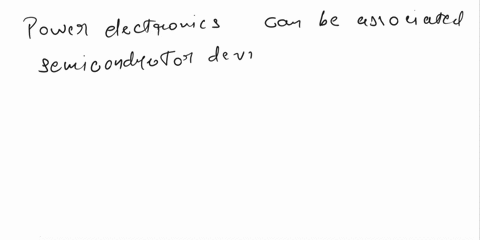 Power electronics can be associated
semiconductor devi